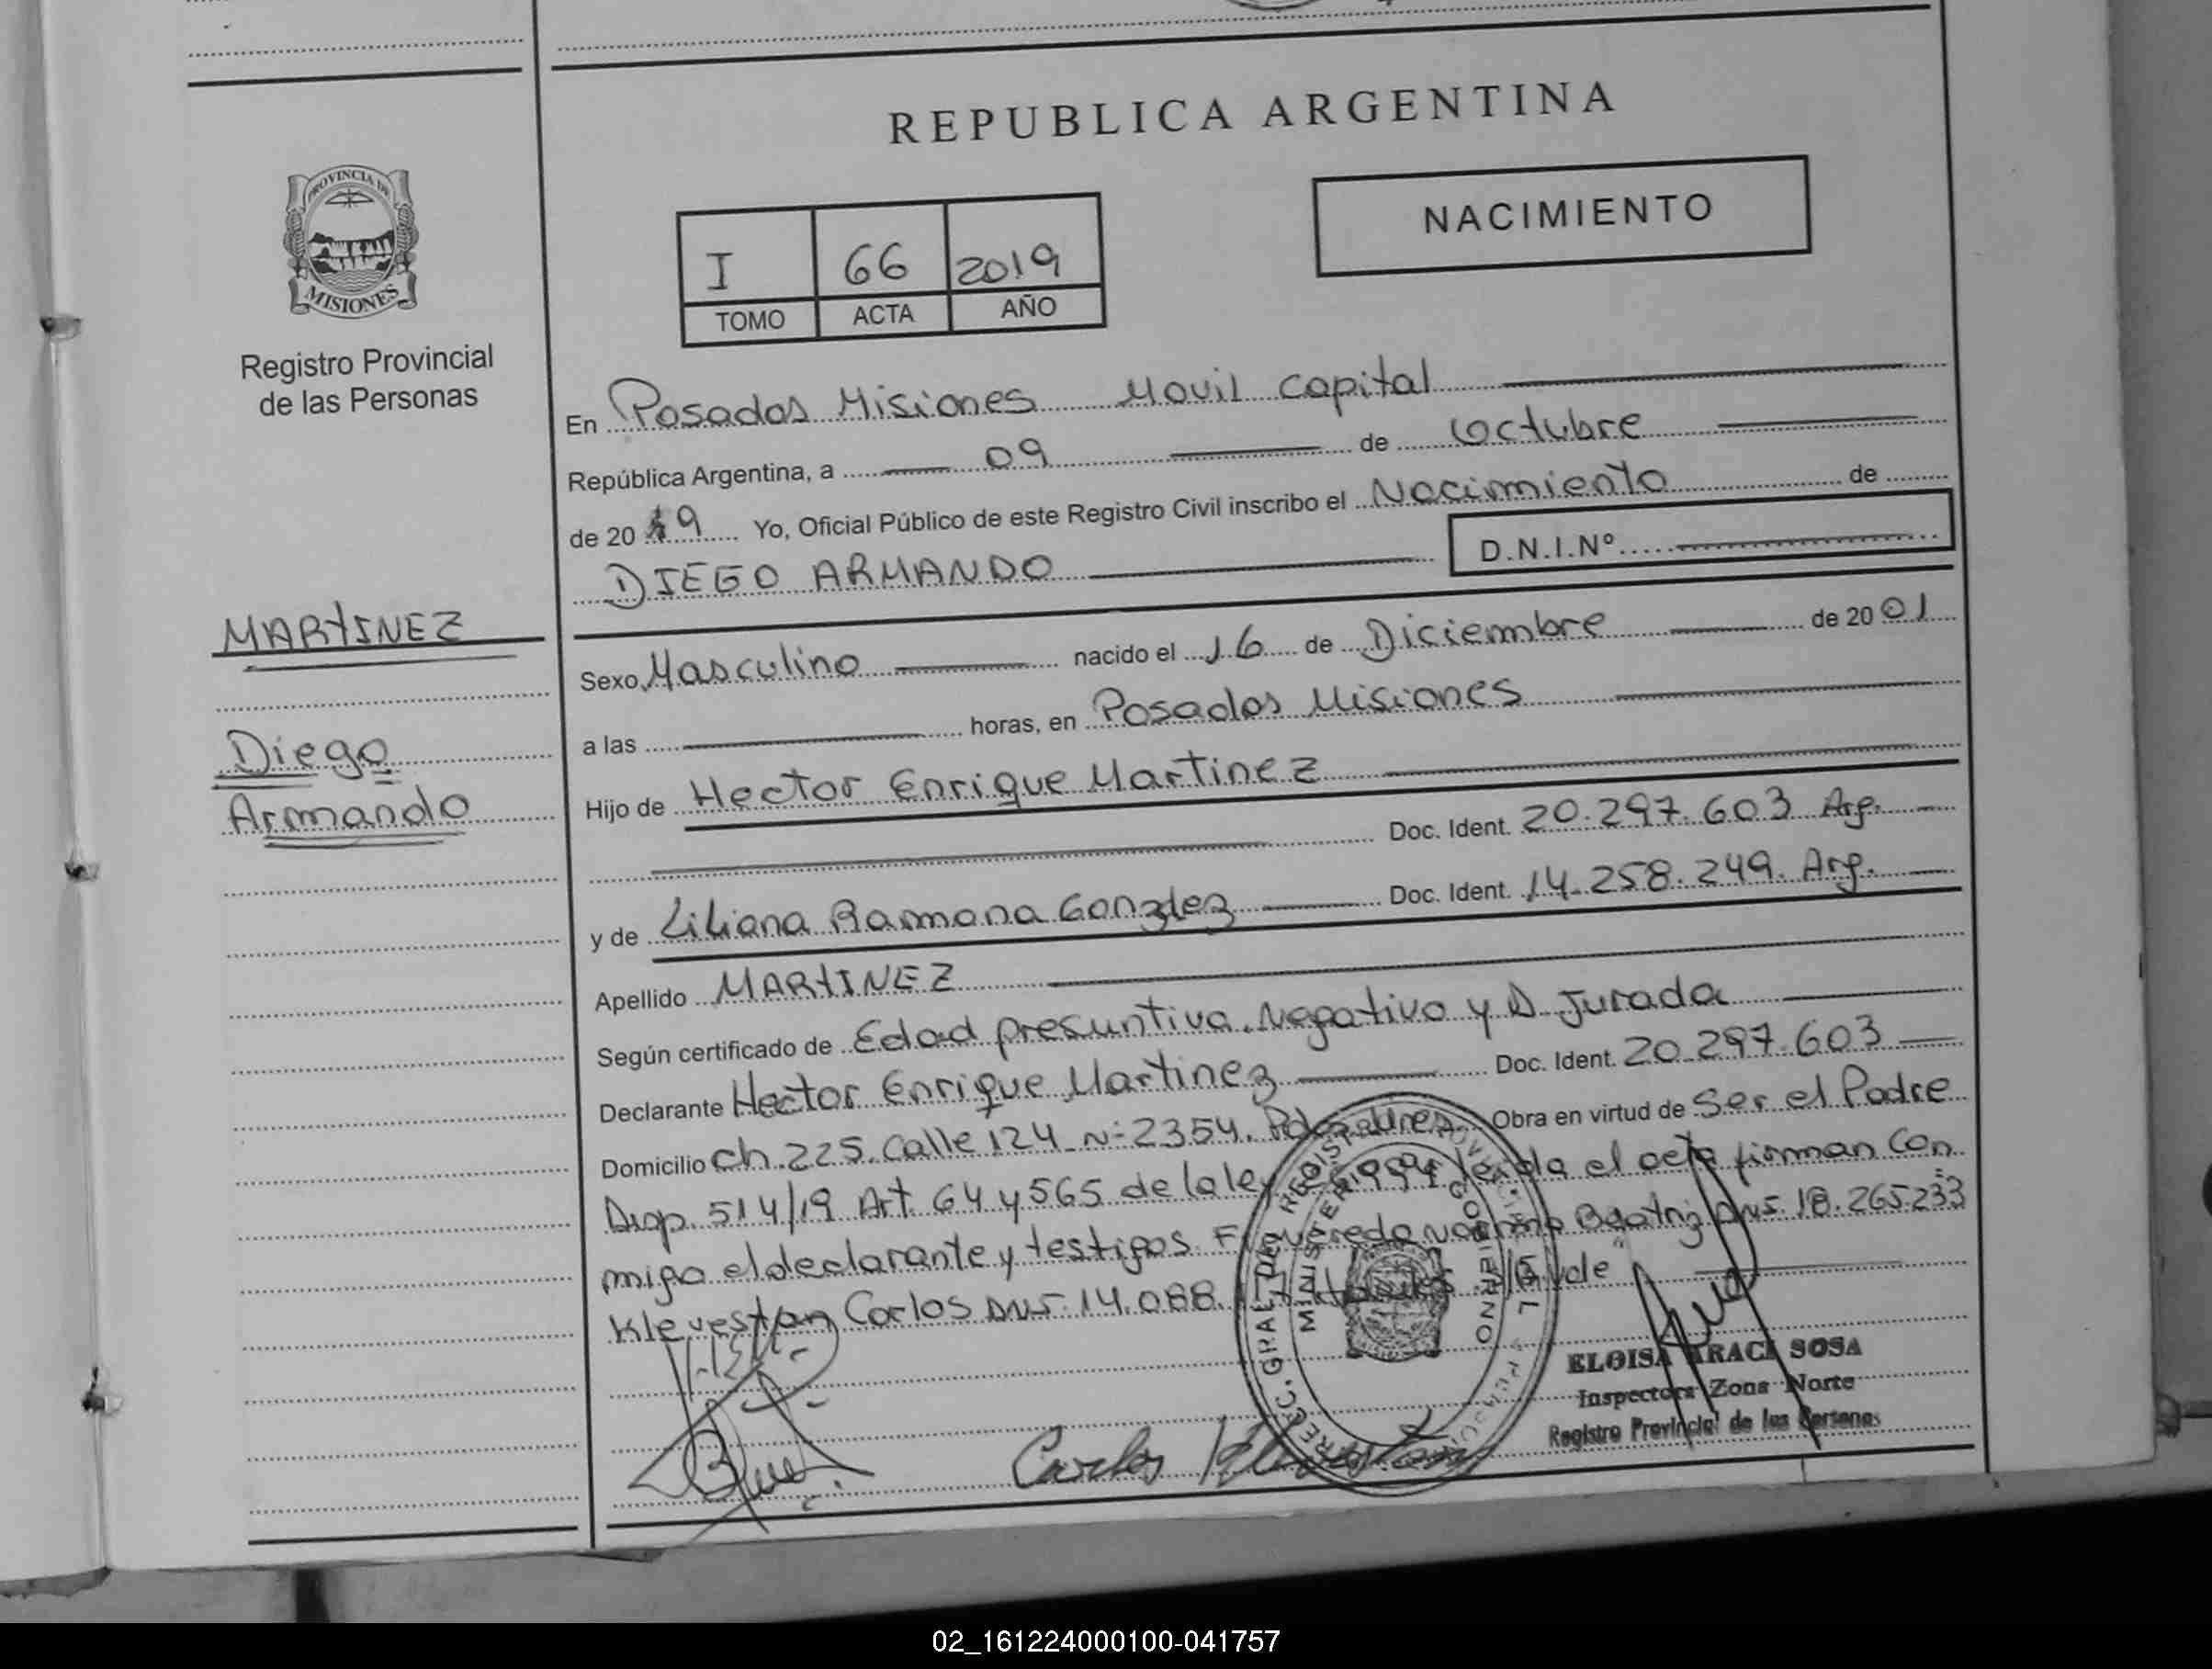 REPUBLICA ARGENTINA
PROVINCIA DE
MISIONES
Registro Provincial
de las Personas
NACIMIENTO
I 66 2019
TOMO ACTA AÑO
En Posadas Misiones Movil Capital
República Argentina, a 09 de Octubre
de 2019 Yo, Oficial Público de este Registro Civil inscribo el Nacimiento de
DIEGO ARMANDO D.N.I.Nº
MARTINEZ
Diego
Armando
Sexo Masculino nacido el 16 de Diciembre de 2001
a las horas, en Posadas Misiones
Hijo de Hector Enrique Martinez
Doc. Ident. 20.297.603 Arg.
y de Liliana Ramona Gonzlez Doc. Ident. 14.258.249. Arg.
Apellido MARTINEZ
Según certificado de Edad presuntiva, Negativo y D Jurada
Declarante Hector Enrique Martinez Doc. Ident. 20.297.603
Domicilio Ch. 225. Calle 124 N: 2354. Obra en virtud de Ser el Padre
Disp. 514/19 Art. 64 y 565 de la ley leida el acta firman con
migo el declarante y testigos Norma Beatriz DNI. 18.265.233
Klevestan Carlos DNI 14.088.
Carlos Klevestan
ELOISA ARACI SOSA
Inspectora Zona Norte
Registro Provincial de las Personas
02_161224000100-041757